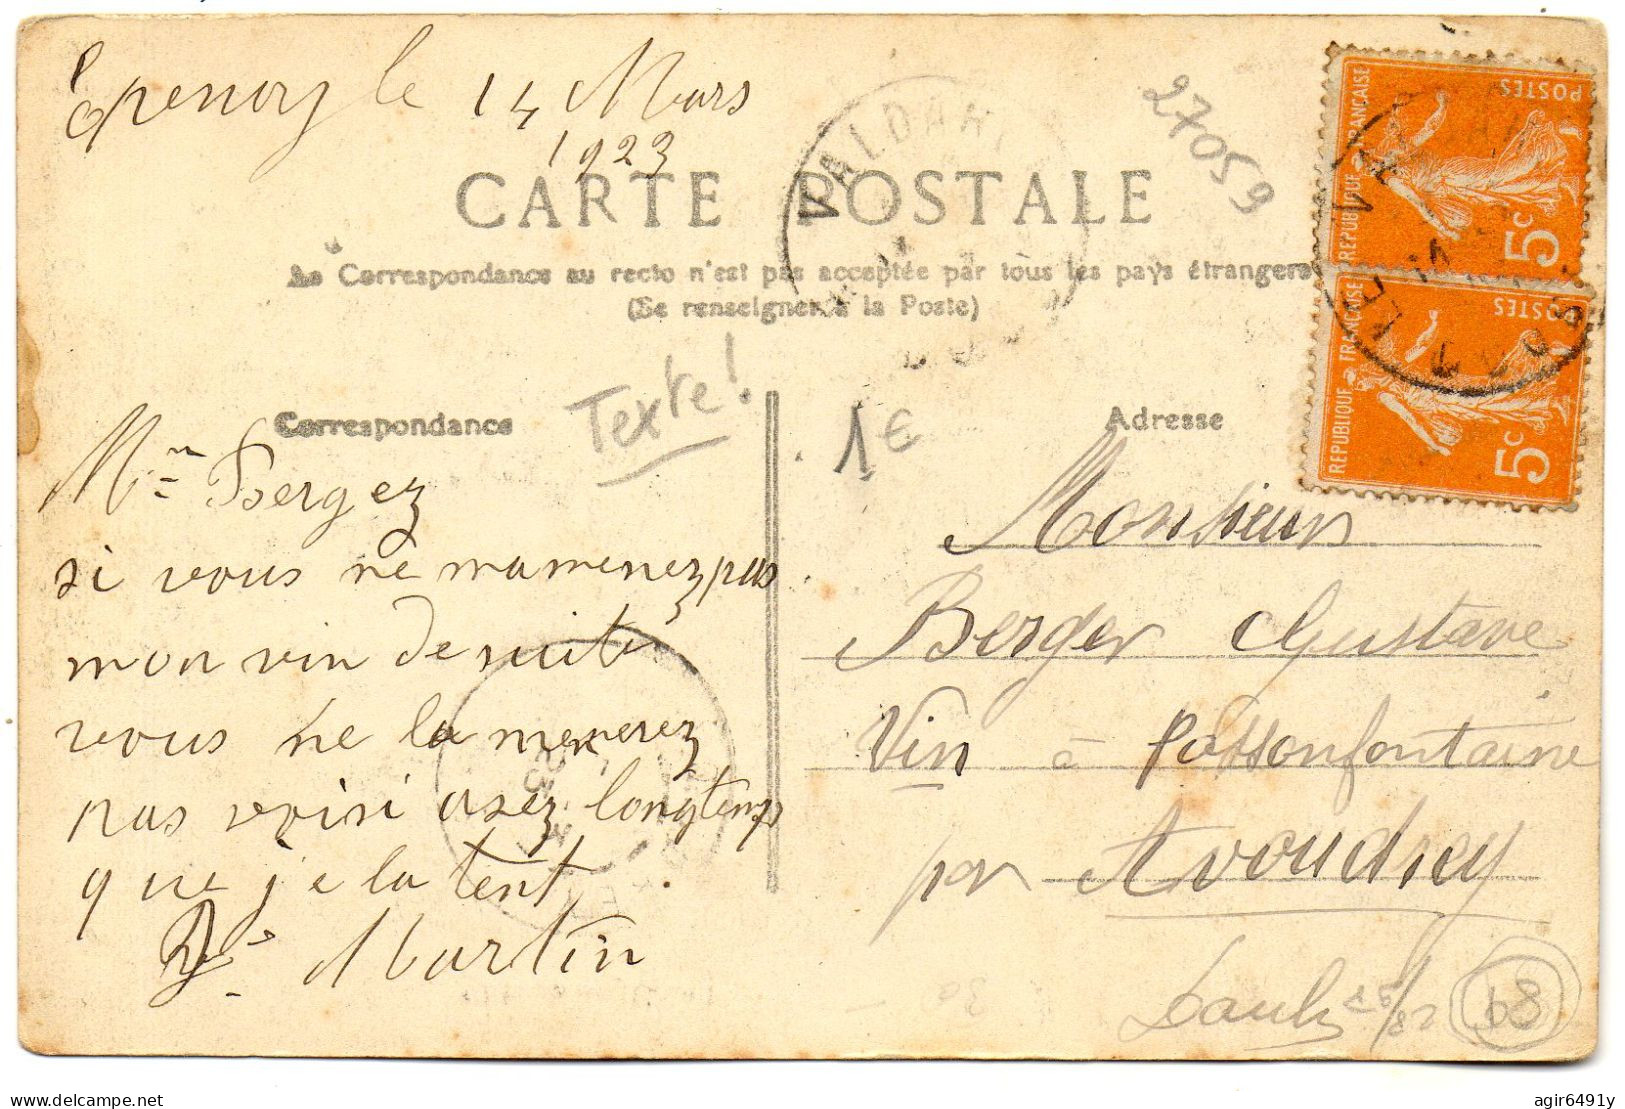 Epenoy le 14 Mars
1923
CARTE POSTALE
La Correspondance au recto n'est pas acceptée par tous les pays étrangers
(Se renseigner à la Poste)
VALDAHON
27059
REPUBLIQUE FRANCAISE
POSTES
5c
REPUBLIQUE FRANCAISE
POSTES
5c
Correspondance
Texte!
1€
Adresse
Mr Bergez
si vous ne mamenez pas
mon vin de suite
vous ne la menerez
pas voisi asez longtemp
que je la tent
Martin
Monsieur
Berger Gustave
Vin à Passonfontaine
par Avoudrey
Doubs
68
delcampe.net
agir6491y